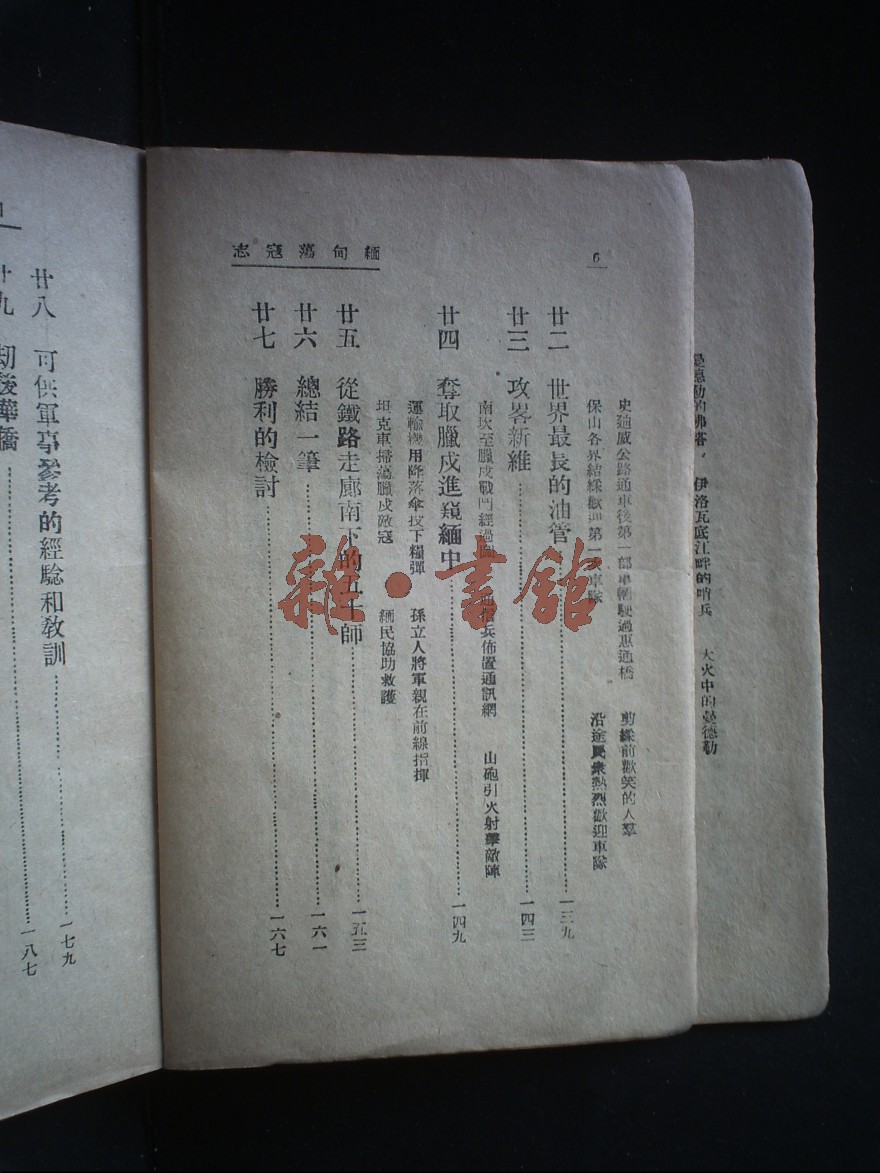 曼德勒的佛塔， 伊洛瓦底江畔的哨兵 大火中的曼德勒
6
緬甸蕩寇志
史迪威公路通車後第一部車輛駛過惠通橋 剪綵前歡笑的人羣
保山各界結綵歡迎第一 車隊 沿途民衆熱烈歡迎車隊
廿二 世界最長的油管 一三九
廿三 攻畧新維 一四三
南坎至臘戍戰鬥經過圖 通信兵佈置通訊網 山砲引火射擊敵陣
廿四 奪取臘戍進窺緬中 一四九
運輸機用降落傘投下糧彈 孫立人將軍親在前線指揮
坦克車掃蕩臘戍敵寇 緬民協助救護
廿五 從鐵路走廊南下的五十師 一五三
廿六 總結一筆 一六一
廿七 勝利的檢討 一六七
廿八 可供軍事參考的經驗和敎訓 一七九
廿九 刧後華僑 一八七
雜·書館